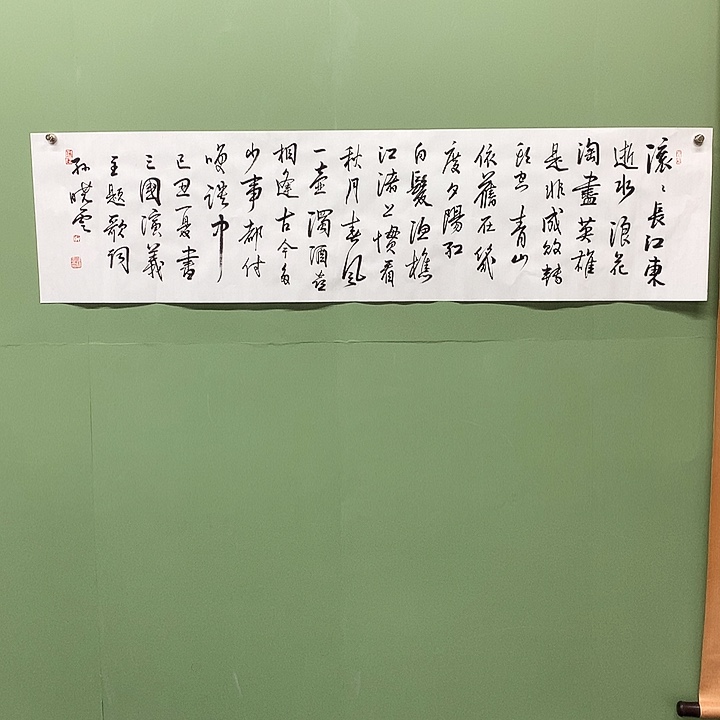 滚〻長江東
逝水浪花
淘盡英雄
是非成敗轉
頭空青山
依舊在幾
度夕陽紅
白髮漁樵
江渚上慣看
秋月春風
一壺濁酒喜
相逢古今多
少事都付
笑談中
己丑夏書
三國演義
主題歌詞
孙晓雲